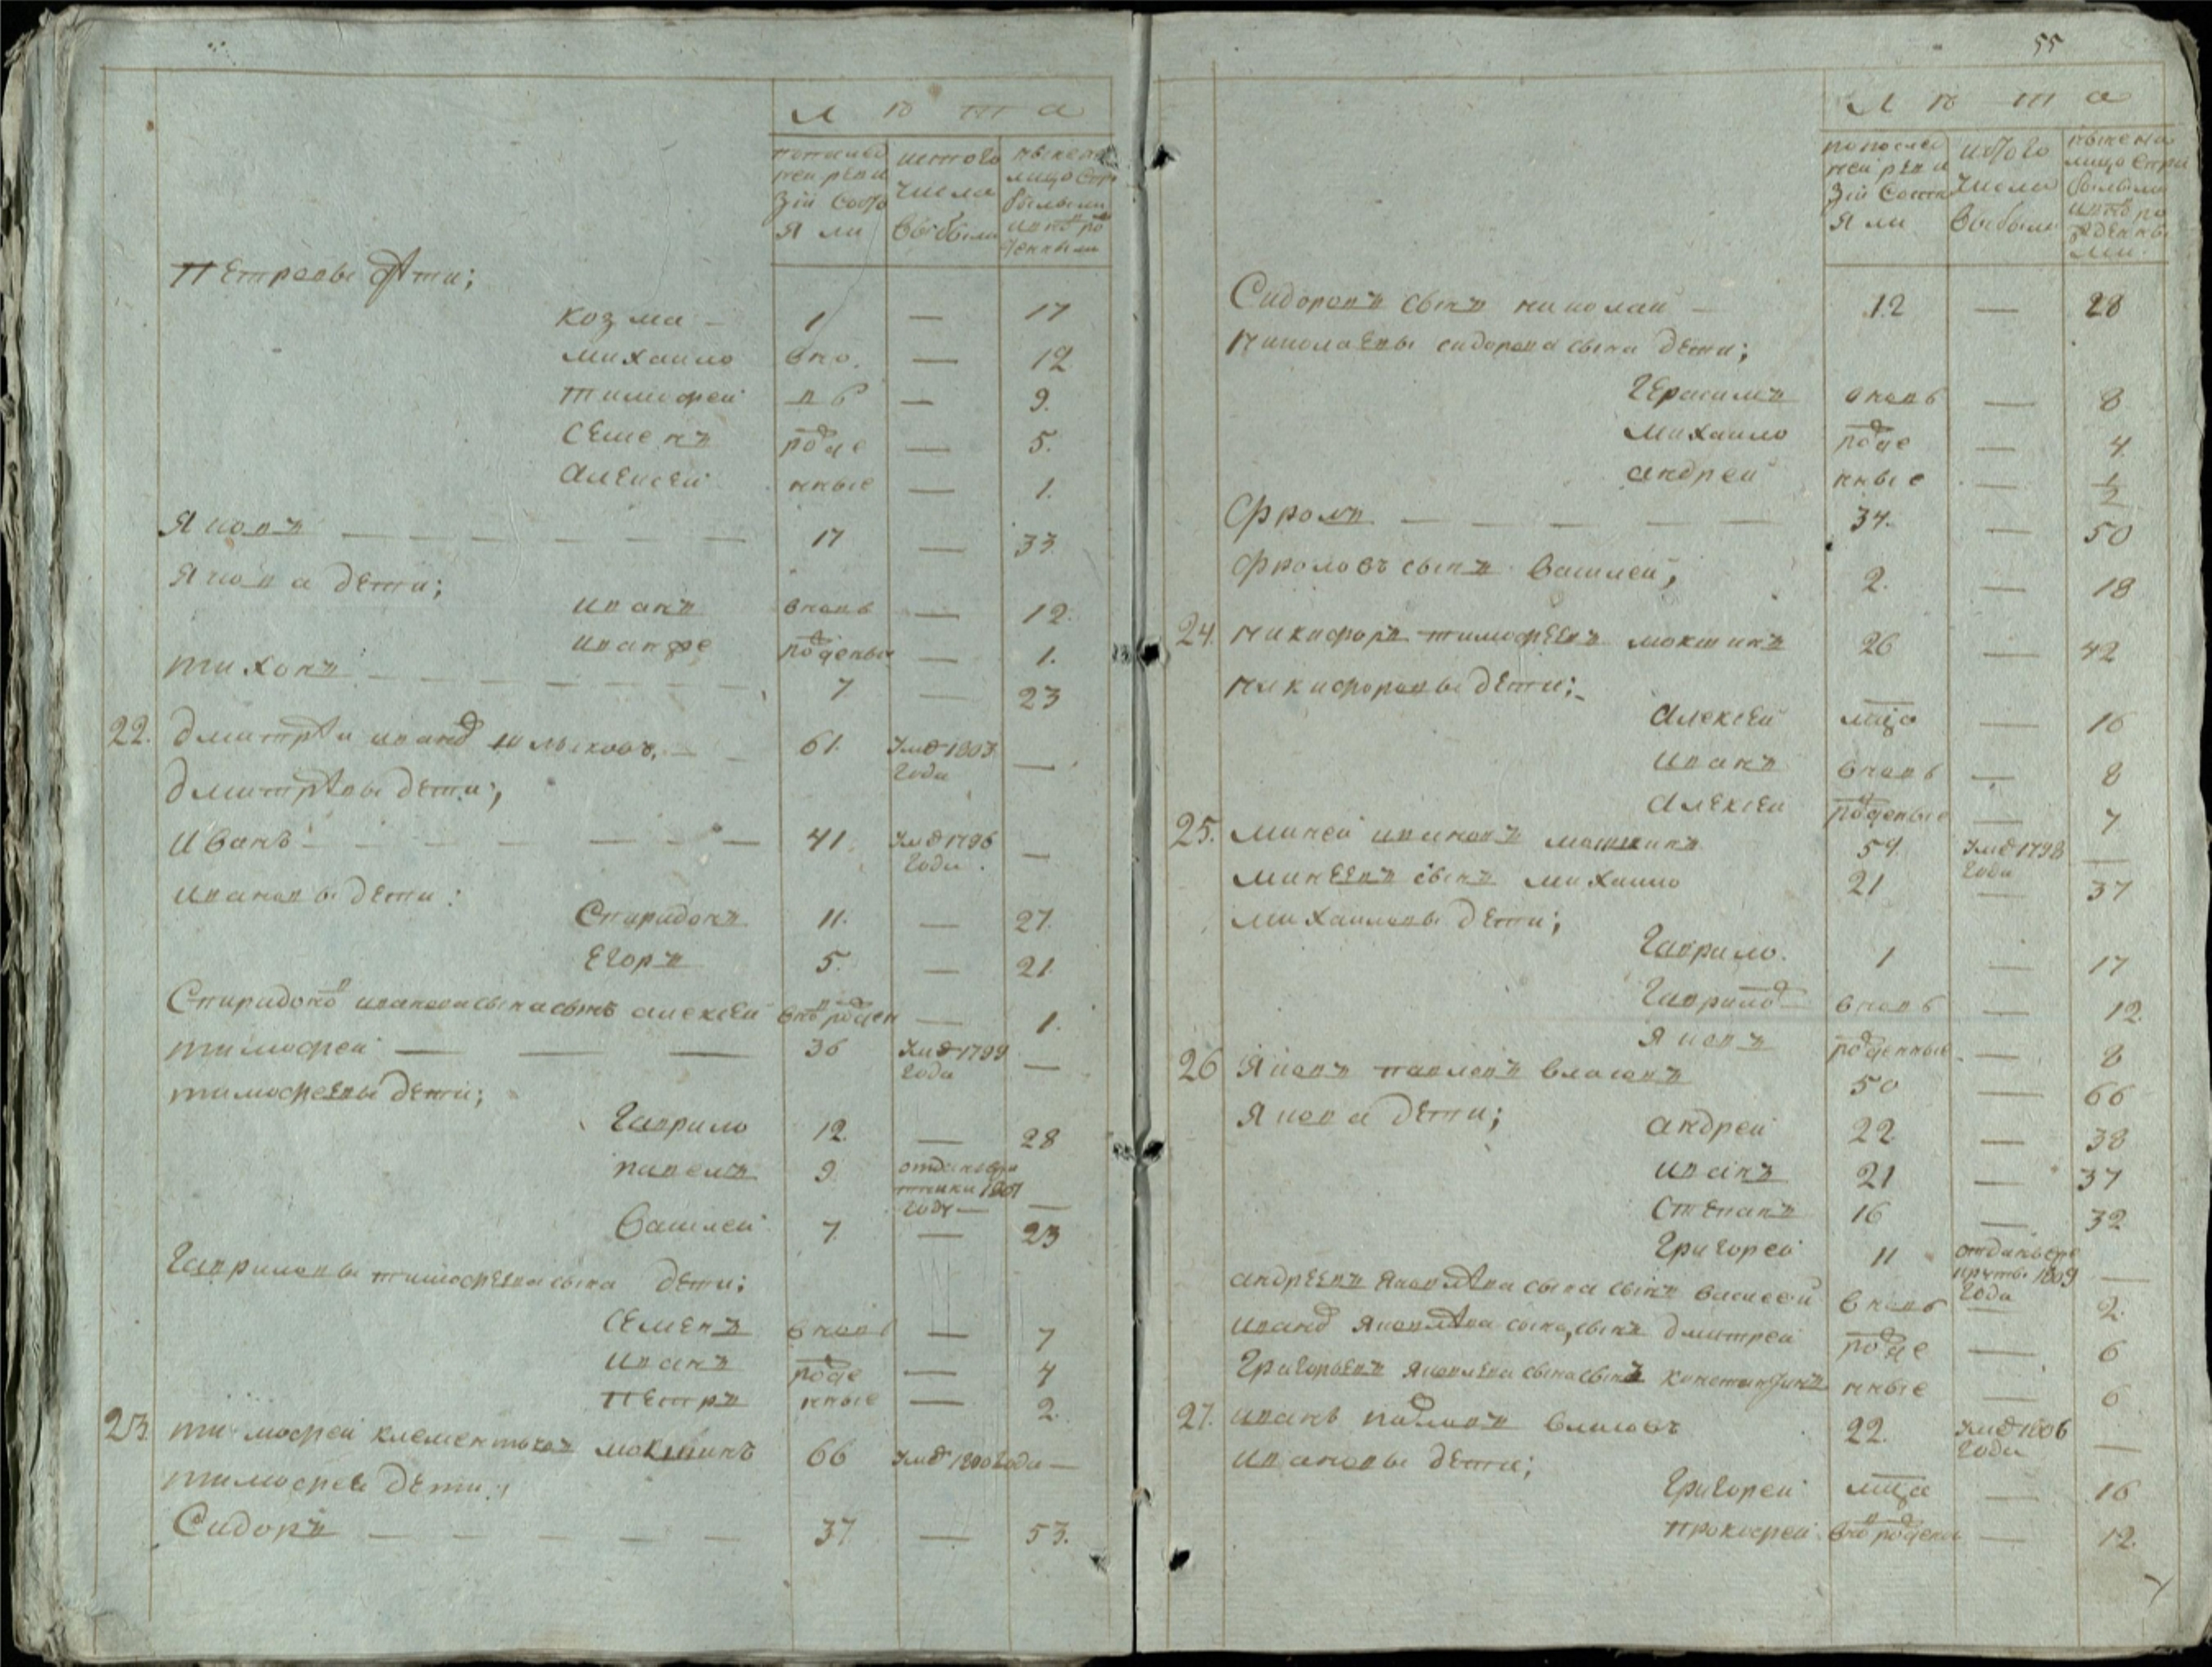 лѣта
попослед
ней реви
зiи состо
яли
истого
числа
выбыли
ныне на
лицо спри
былыми
ивно вро
жденными
Петровы дѣти;
Козма — 1 — 17
Михаило вно — 12
Тимофей въ — 9.
Семенъ рожде — 5.
Алексей нные — 1.
Яковъ — 17 — 33
Якова дети;
Иванъ вновь — 12.
Иванже рожденые — 1.
Тихонъ — 7 — 23
22. Дмитрѣй Иванов 61. умре 1803 года —
Дмитрѣвы дети;
Иванъ — 41. умре 1796 года. —
Ивановы дети:
Спиридонъ 11. — 27.
Егоръ 5. — 21.
Спиридонов Иванова сына сынъ Алексей внов рожден — 1.
Тимофей — 36 умре 1799 года —
Тимофеевы дети;
Гаврило 12. — 28
Павелъ 9. отданъ в рекруты 1807 году —
Василей 7. — 23
Гавриловы Тимофеева сына дети;
Семенъ вновь — 7
Иванъ рожде — 4
Петръ нные — 2.
23. Тимофей Клементьевъ Мокшинъ 66 умре 1800 года —
Тимофее дети;
Сидоръ — 37 — 53.
55
лѣта
попослед
ней реви
зiи состо
яли
истого
числа
выбыли
ныне на
лицо спри
былыми
ивнов ро
жденны
ми.
Сидоровъ сынъ Николай — 12 — 28
Николаевы Сидорова сына дети;
Герасимъ вновь — 8
Михаило рожде — 4
Андрей нные — 1/2
Фролъ — 34. — 50
Фроловъ сынъ Василей, 2. — 18
24. Никифоръ Тимофеевъ Мокшинъ 26 — 42
Никифоровы дети;
Алексей мца — 16
Иванъ вновь — 8
Алексей рожденые — 7
25. Миней Ивановъ Мокшинъ 59. умре 1798 года —
Минеевъ сынъ Михаило 21 — 37
Михаиловы дети;
Гаврило. 1 — 17
Гаврило вновь — 12.
Яковъ рожденные — 8
26 Яковъ Павловъ Власовъ 50 — 66
Якова дети;
Андрей 22 — 38
Иванъ 21 — 37
Степанъ 16 — 32
Григорей 11 отданъ в рекруты 1809 года —
Андреевъ Яковлѣва сына сынъ Василей вновь — 2.
Иванов Яковлѣва сына, сынъ Дмитрей рожде — 6
Григорьевъ Яковлева сына сынъ Константинъ нные — 6
27. Иванъ Павловъ Власовъ 22. умре 1806 года —
Ивановы дети;
Григорей мца — 16
Прокофей внов рождены — 12.